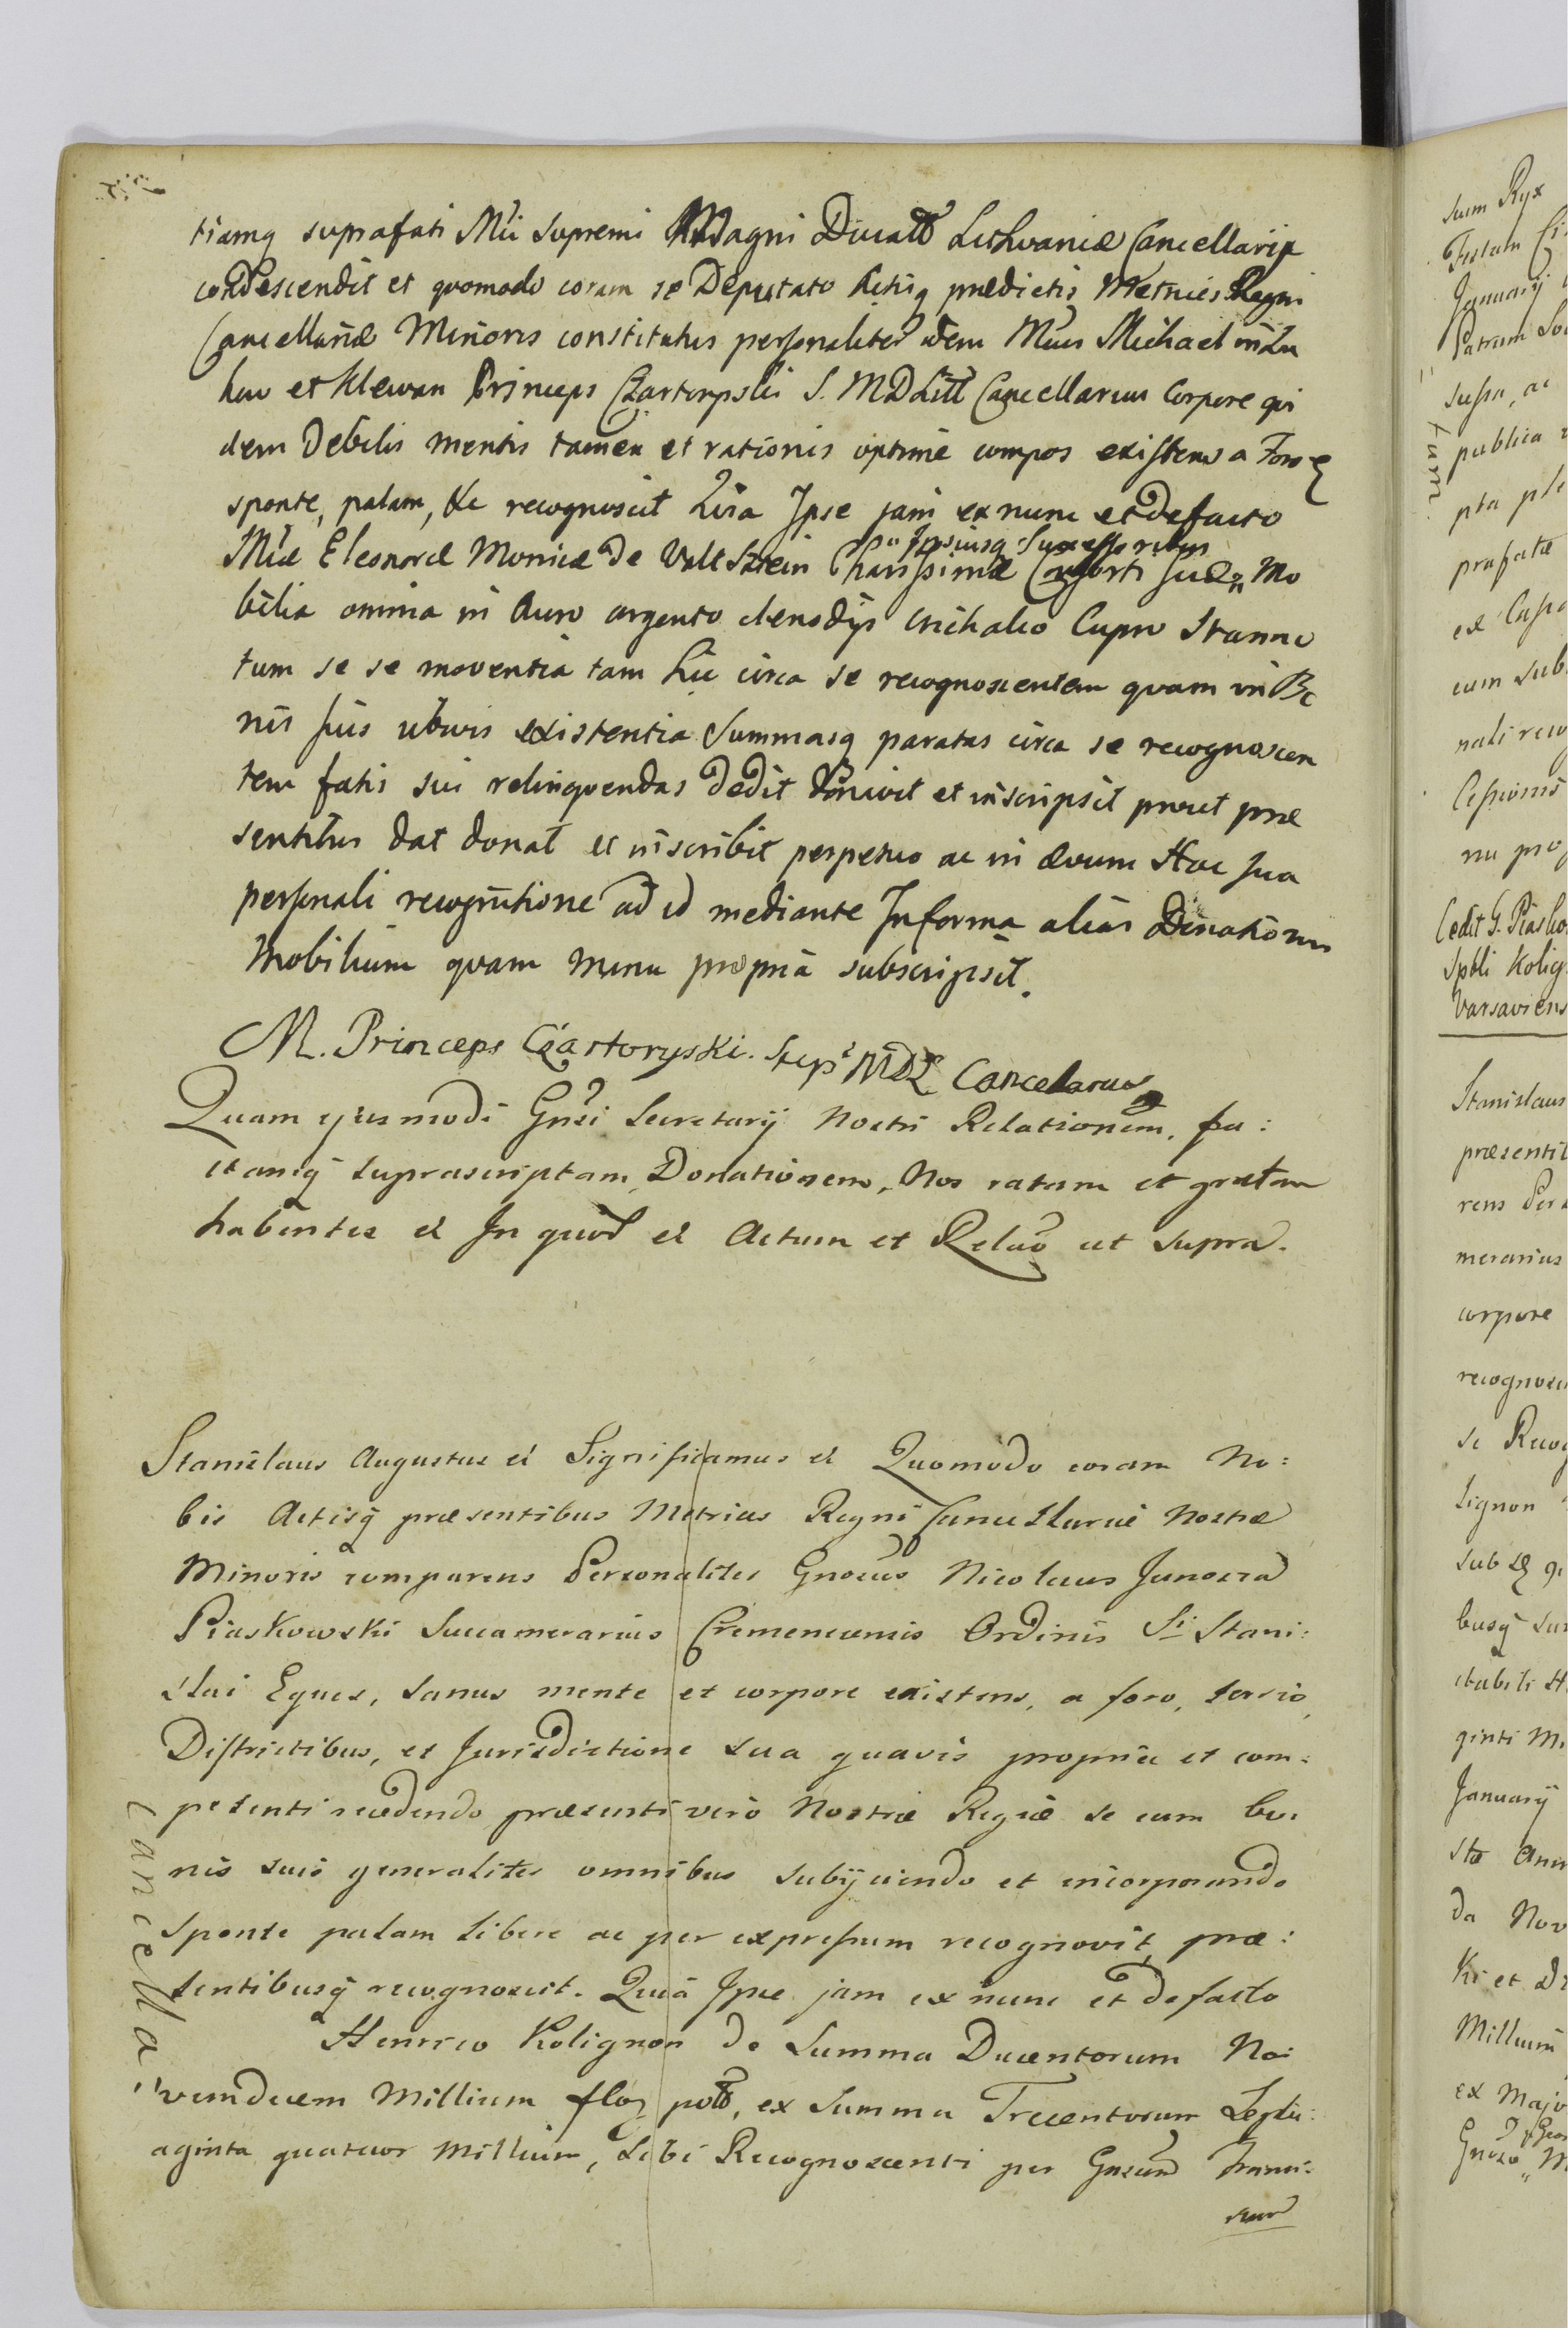 tiamq suprafati Mci Supremi Magni Ducatt Lithvaniæ Cancellarij
condescendit et qvomodo coram se Deputato Actisq prædictis Metrices Regni
Cancellariæ Minoris constitutus personaliter idem Mcus Michael in Lu
kow et Klewan Princeps Czartoryski S. MDLitt Cancellarius Corpore qvi
dem Debilis mentis tamen et rationis optime compos existens a Foro &
sponte, palam, &c recognoscit Qvia Ipse jam ex nunc et defacto
Ipsiusq Successoribus
Mcæ Eleonoræ Monicæ de Valt Sztein Charissimæ Consorti suæ Mo
bilia omnia in Auro argento clenodijs orichalco Cupro Stanno
tum se se moventia tam hic circa se recognoscentem qvam in Bo
nis suis ubivis existentia Summasq paratas circa se recognoscen
tem fatis sui relinqvendas dedit donavit et inscripsit prout præ
sentibus dat donat et inscribit perpetuo ac in ævum Hac sua
personali recognitione ad id mediante In forma alias Donationem
Mobilium qvam manu propria subscripsit.
M. Princeps Czartoryski. Sup MDL Cancelarius
Quam ejusmodi Gnsi Secretarij Nostri Relationem, fa:
ctamq suprascriptam Donationem, Nos ratam et gratam
habentes et In quor et Actum et Relao ut supra.
Stanislaus Augustus et Significamus et Quomodo coram No:
bis Actisq præsentibus Metrices Regni Cancellariæ Nostræ
Minoris comparens Personaliter Gnosus Nicolaus Junosza
Piaskowski Succamerarius Cremenecensis Ordinis Sti Stani:
slai Eques, sanus mente et corpore existens, a foro, servio,
Districtibus, et Jurisdictione sua quavis propria et com:
petenti recedendo præsenti vero Nostræ Regiæ se cum bo:
nis suis generaliter omnibus subijciendo et incorporando
sponte palam libere ac per expressum recognovit, præ:
sentibusq recognoscit. Quia Ipse jam ex nunc et de facto
Henrico Kolignon de Summa Ducentorum No:
vemdecem Millium flor polt, ex Summa Trecentorum Septu:
aginta quatuor Millium, Sibi Recognoscenti per Gnsum Franci:
scum
Cancella
suum Ryx
January
Patrum
supra, ac
publica
pta ple
prafatæ
cum sub
nali reco
Cessionis
nu pro
tum
Cedit G. Piasko
Spbli Kolig
Varsaviens
Stanislaus
præsentib
rens Pers
merarius
corpore
recognosci
se Recog
lignon
busq
stabili
ginti Mi
January
sto Ann
da Nov
ki et
Millium
ex Majo
Gnoso